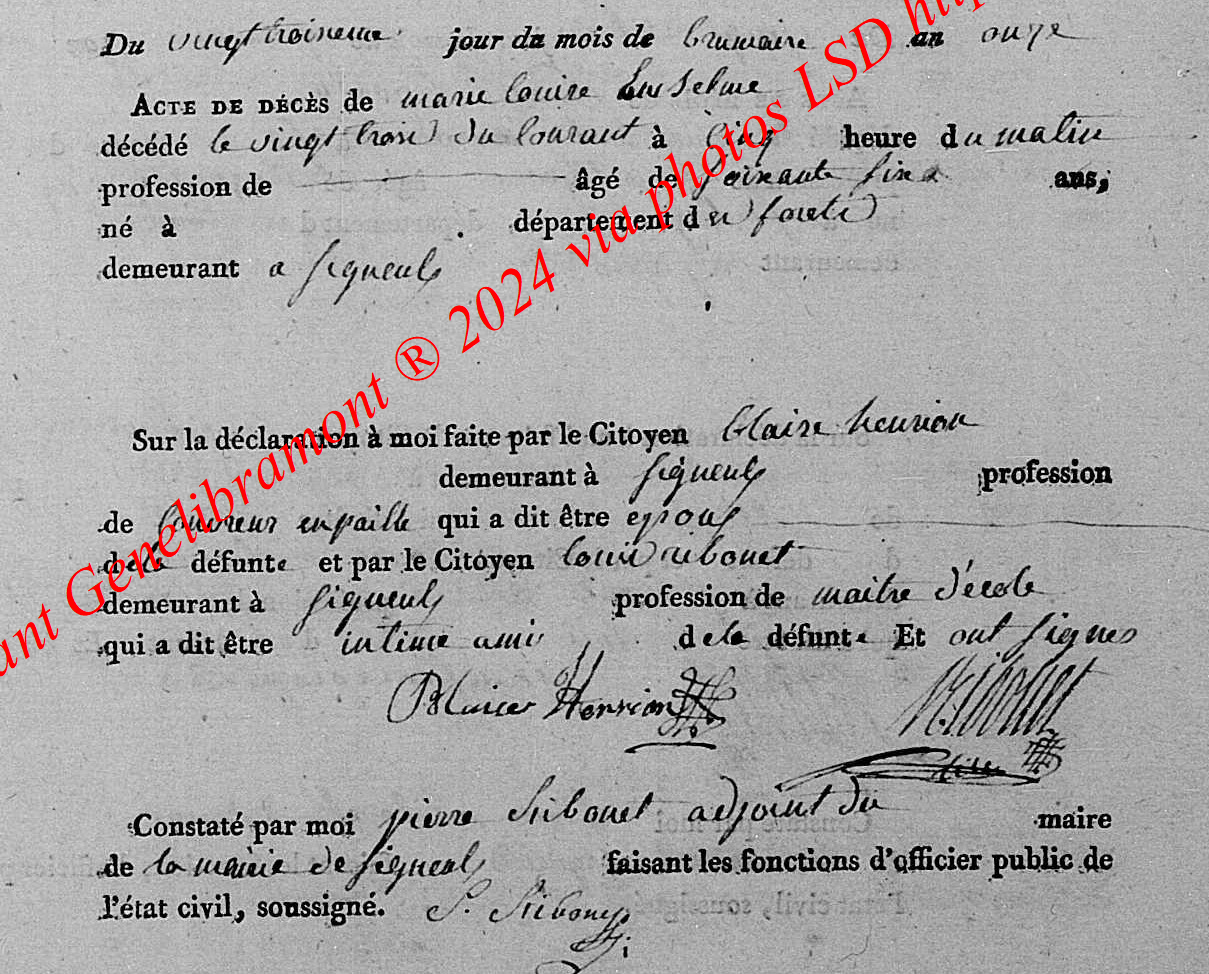 Du vingt troisieme jour du mois de brumaire an onze
ACTE DE DÉCÈS de marie louise Enselme
décédé le vingt trois du Courant à Cinq heure du matin
profession de âgé de soixante sinq ans,
né à département des forets
demeurant a signeulx
Sur la déclaration à moi faite par le Citoyen blaise henrion
demeurant à signeulx profession
de Couvreur en paille qui a dit être epoux
de la défunte et par le Citoyen louis ribonet
demeurant à signeulx profession de maitre d'école
qui a dit être intime ami de la défunte Et ont signes
Blaise Henrion Ribonet
Constaté par moi pierre Ribonet adjoint du maire
de la mairie de signeulx faisant les fonctions d'officier public de
l'état civil, soussigné. P. Ribonet
Genelibramont ® 2024 via photos LSD